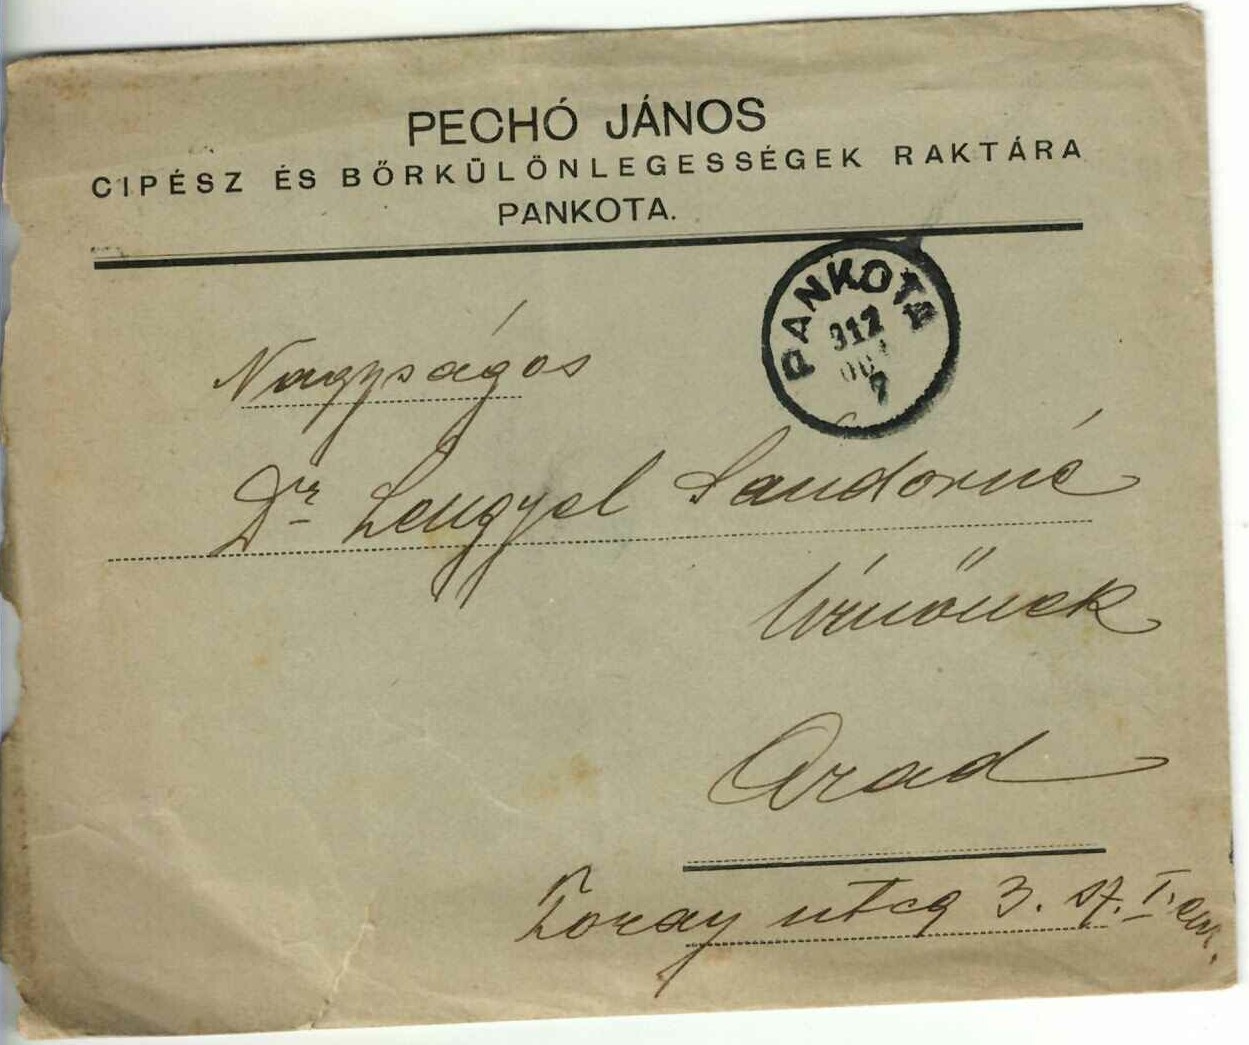 PECHÓ JÁNOS
CIPÉSZ ÉS BŐRKÜLÖNLEGESSÉGEK RAKTÁRA
PANKOTA.
PANKOTA
312
7
Nagyságos
Dr Lengyel Sandorné
Úrnőnek
Arad
utca 3. sz. I. em.